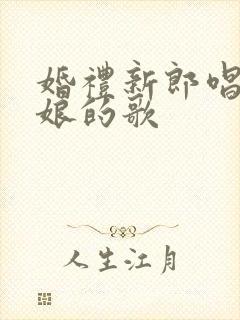 婚禮新郎唱
娘的歌
人生江月